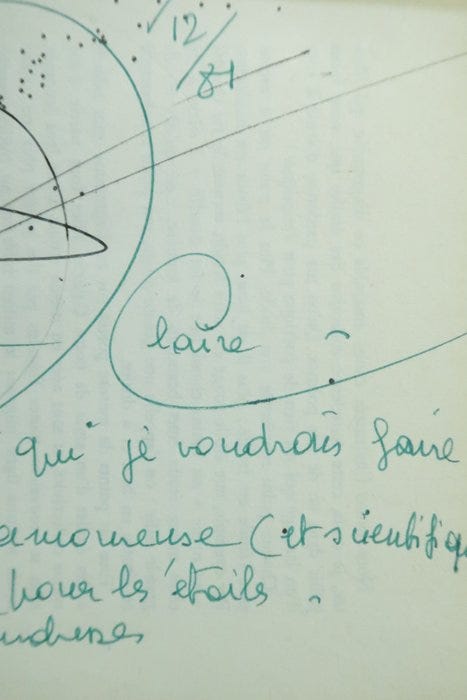 12/81
Claire
qui je voudrais faire
amoureuse (et scientifiq
pour les étoiles.